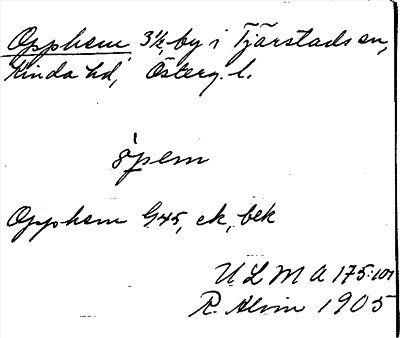 Opphem, 3 1/2, by i Tjärstads sn,
Kinda hd, Österg. l.
òpem
Opphem G45, ek, bek
ULMA 175:101
R. Alvin 1905